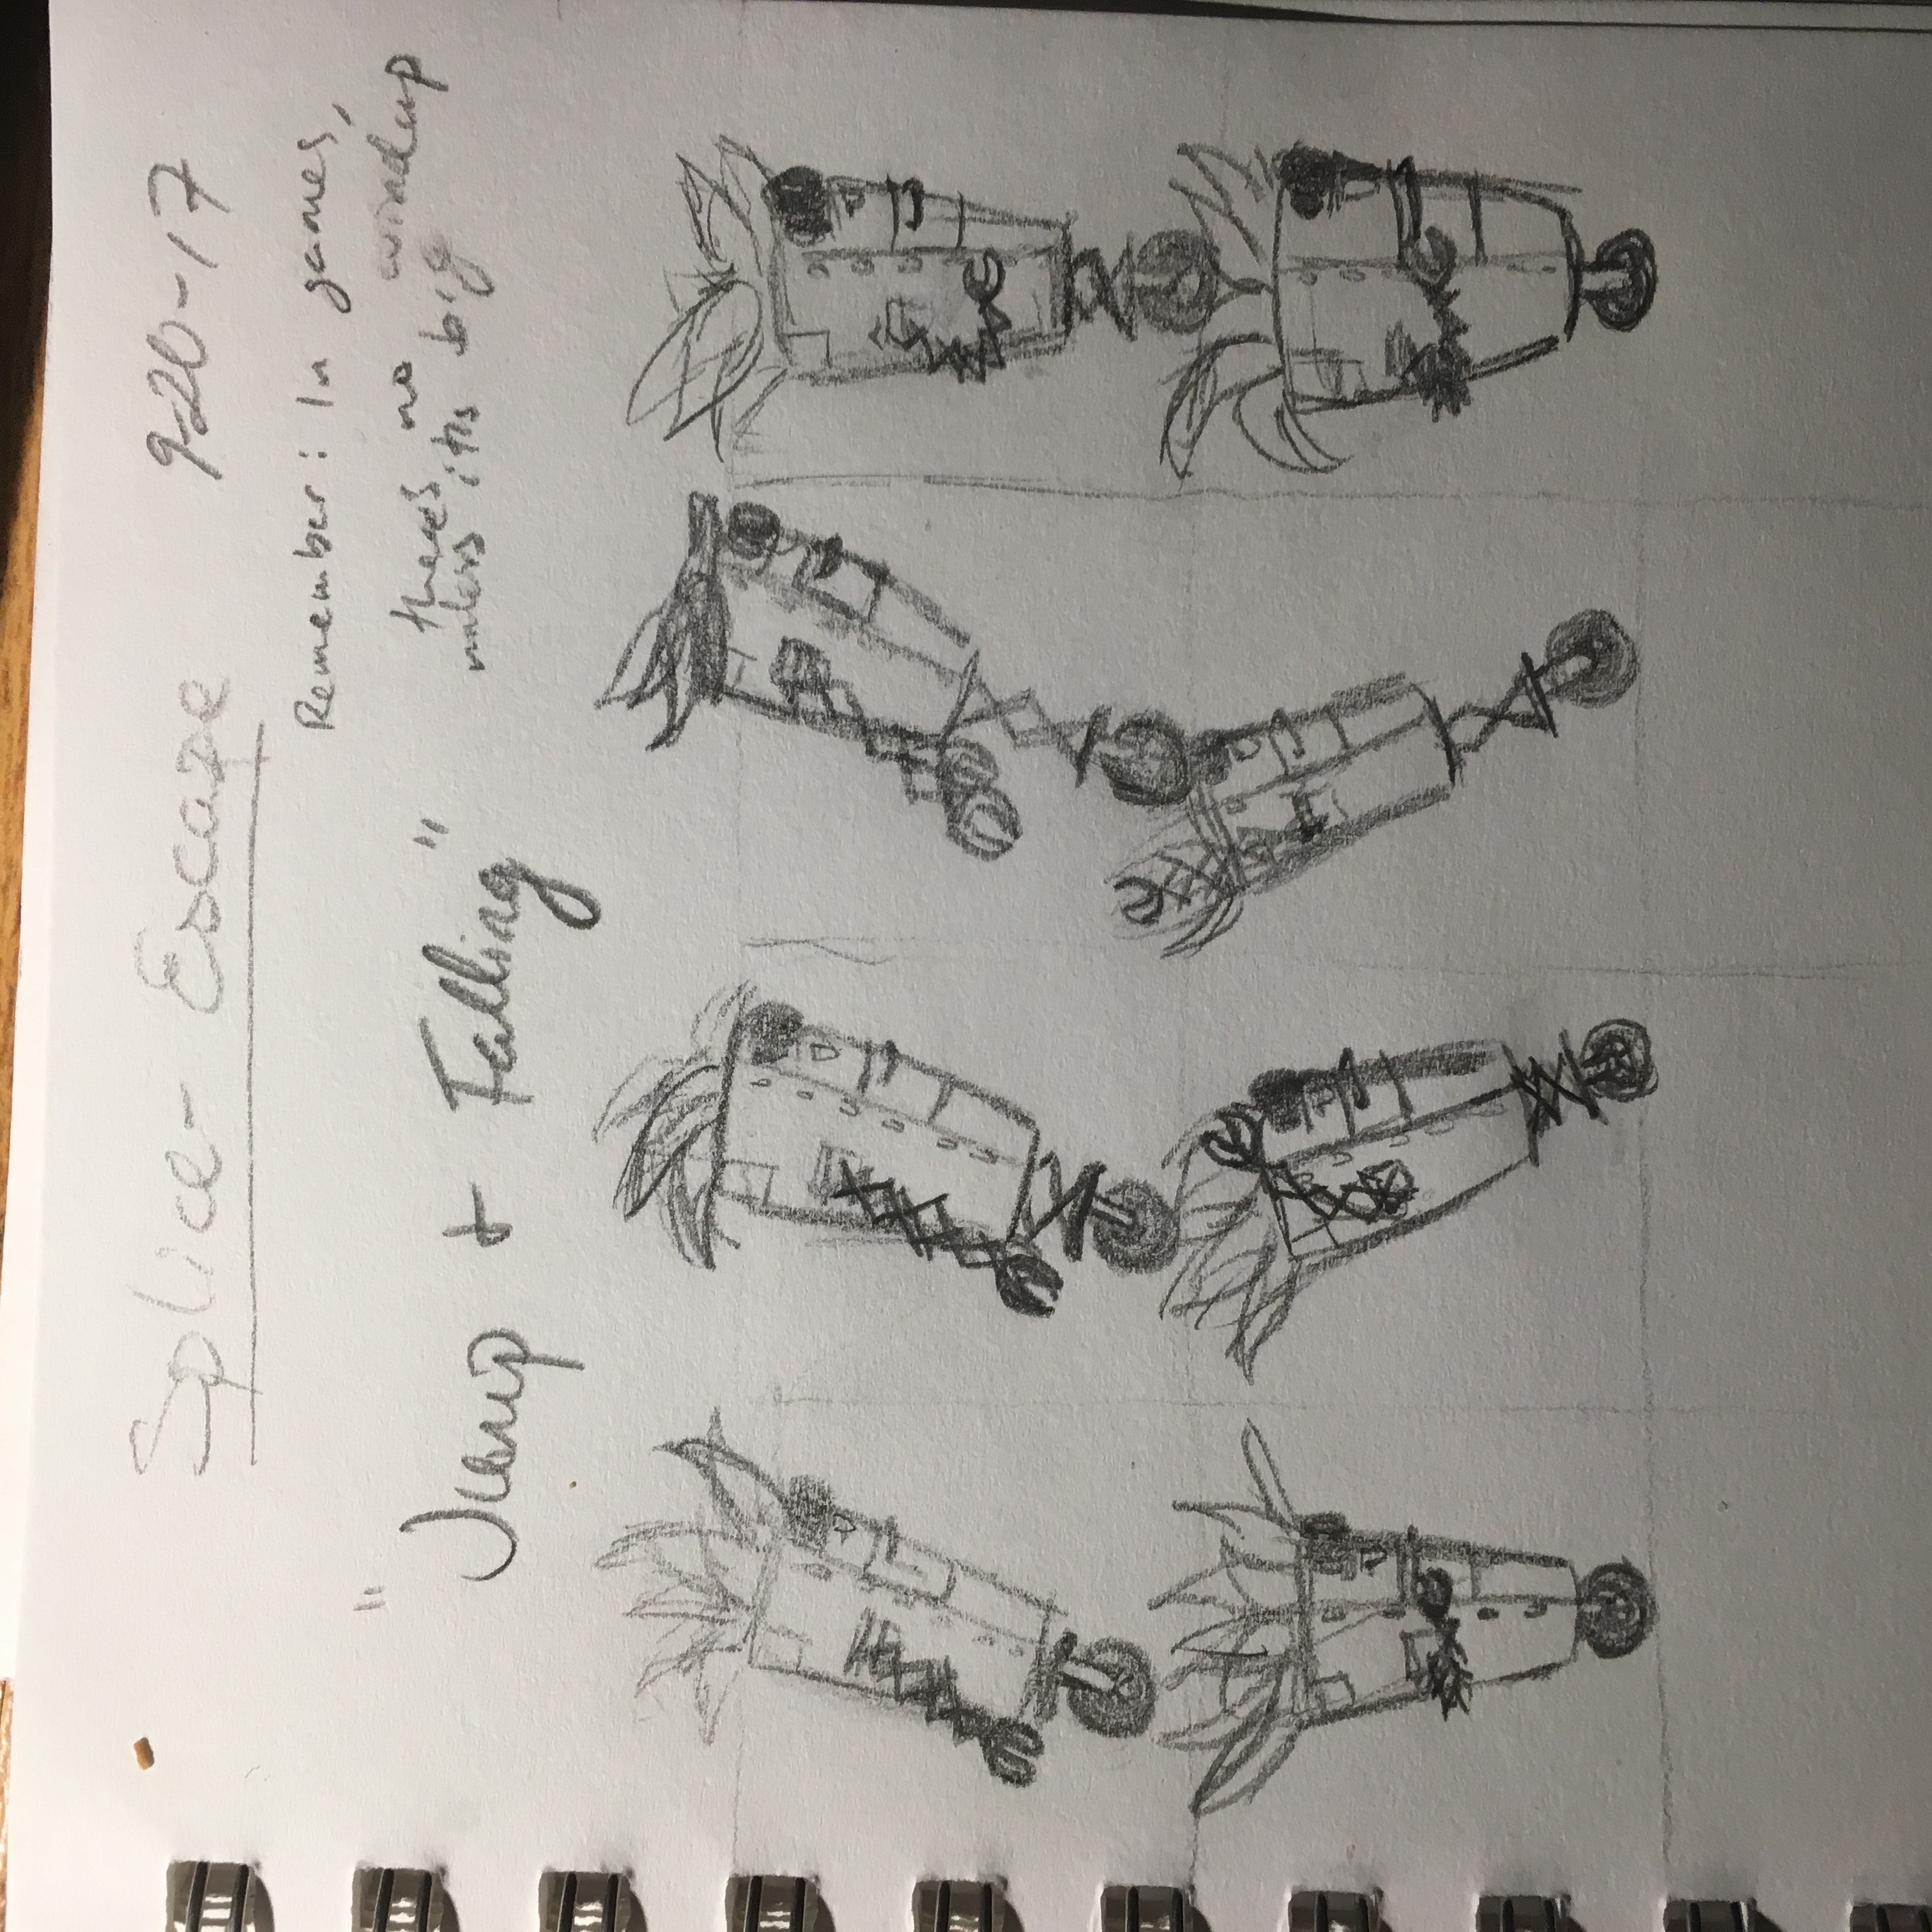 Splice - Escape
9-20-17
Remember: In games,
there's no windup
unless it's big
"Jump + Falling"